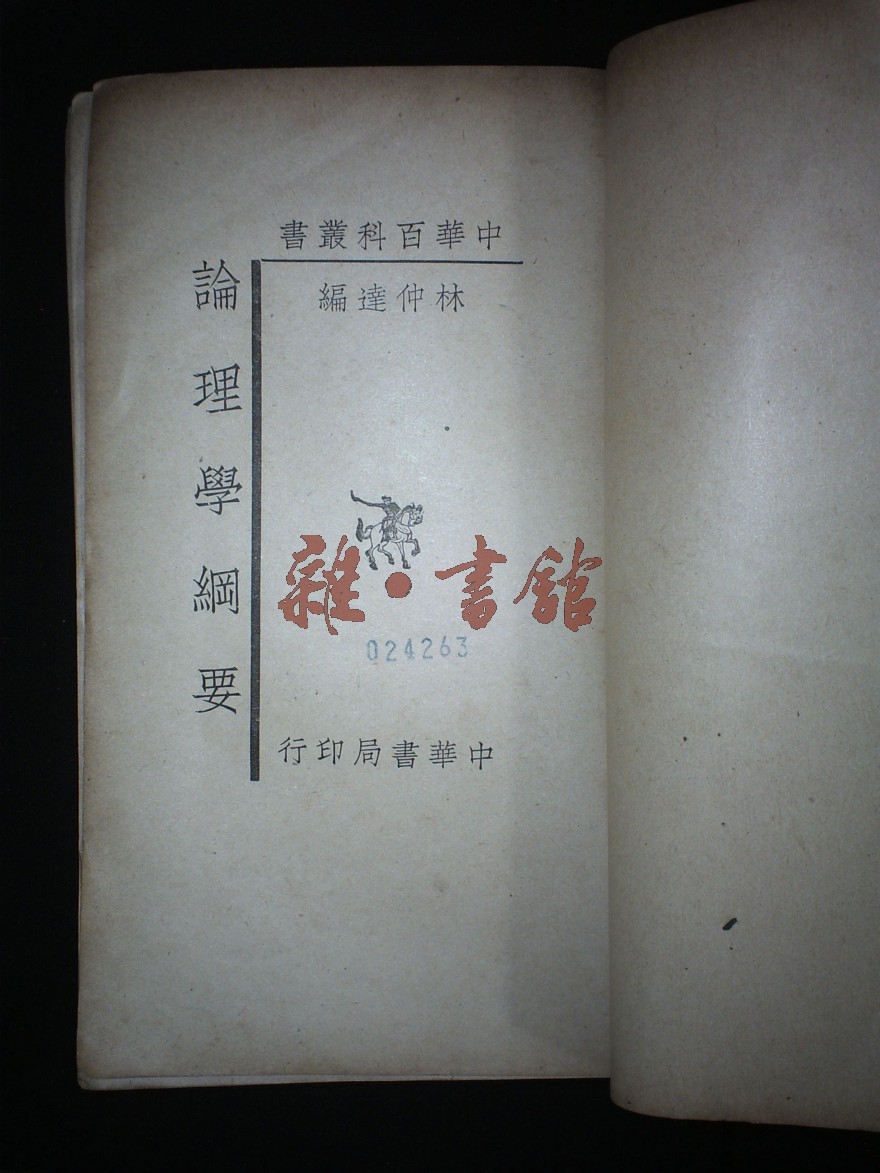 中華百科叢書
林仲達編
論理學綱要
雜·書館
024263
中華書局印行